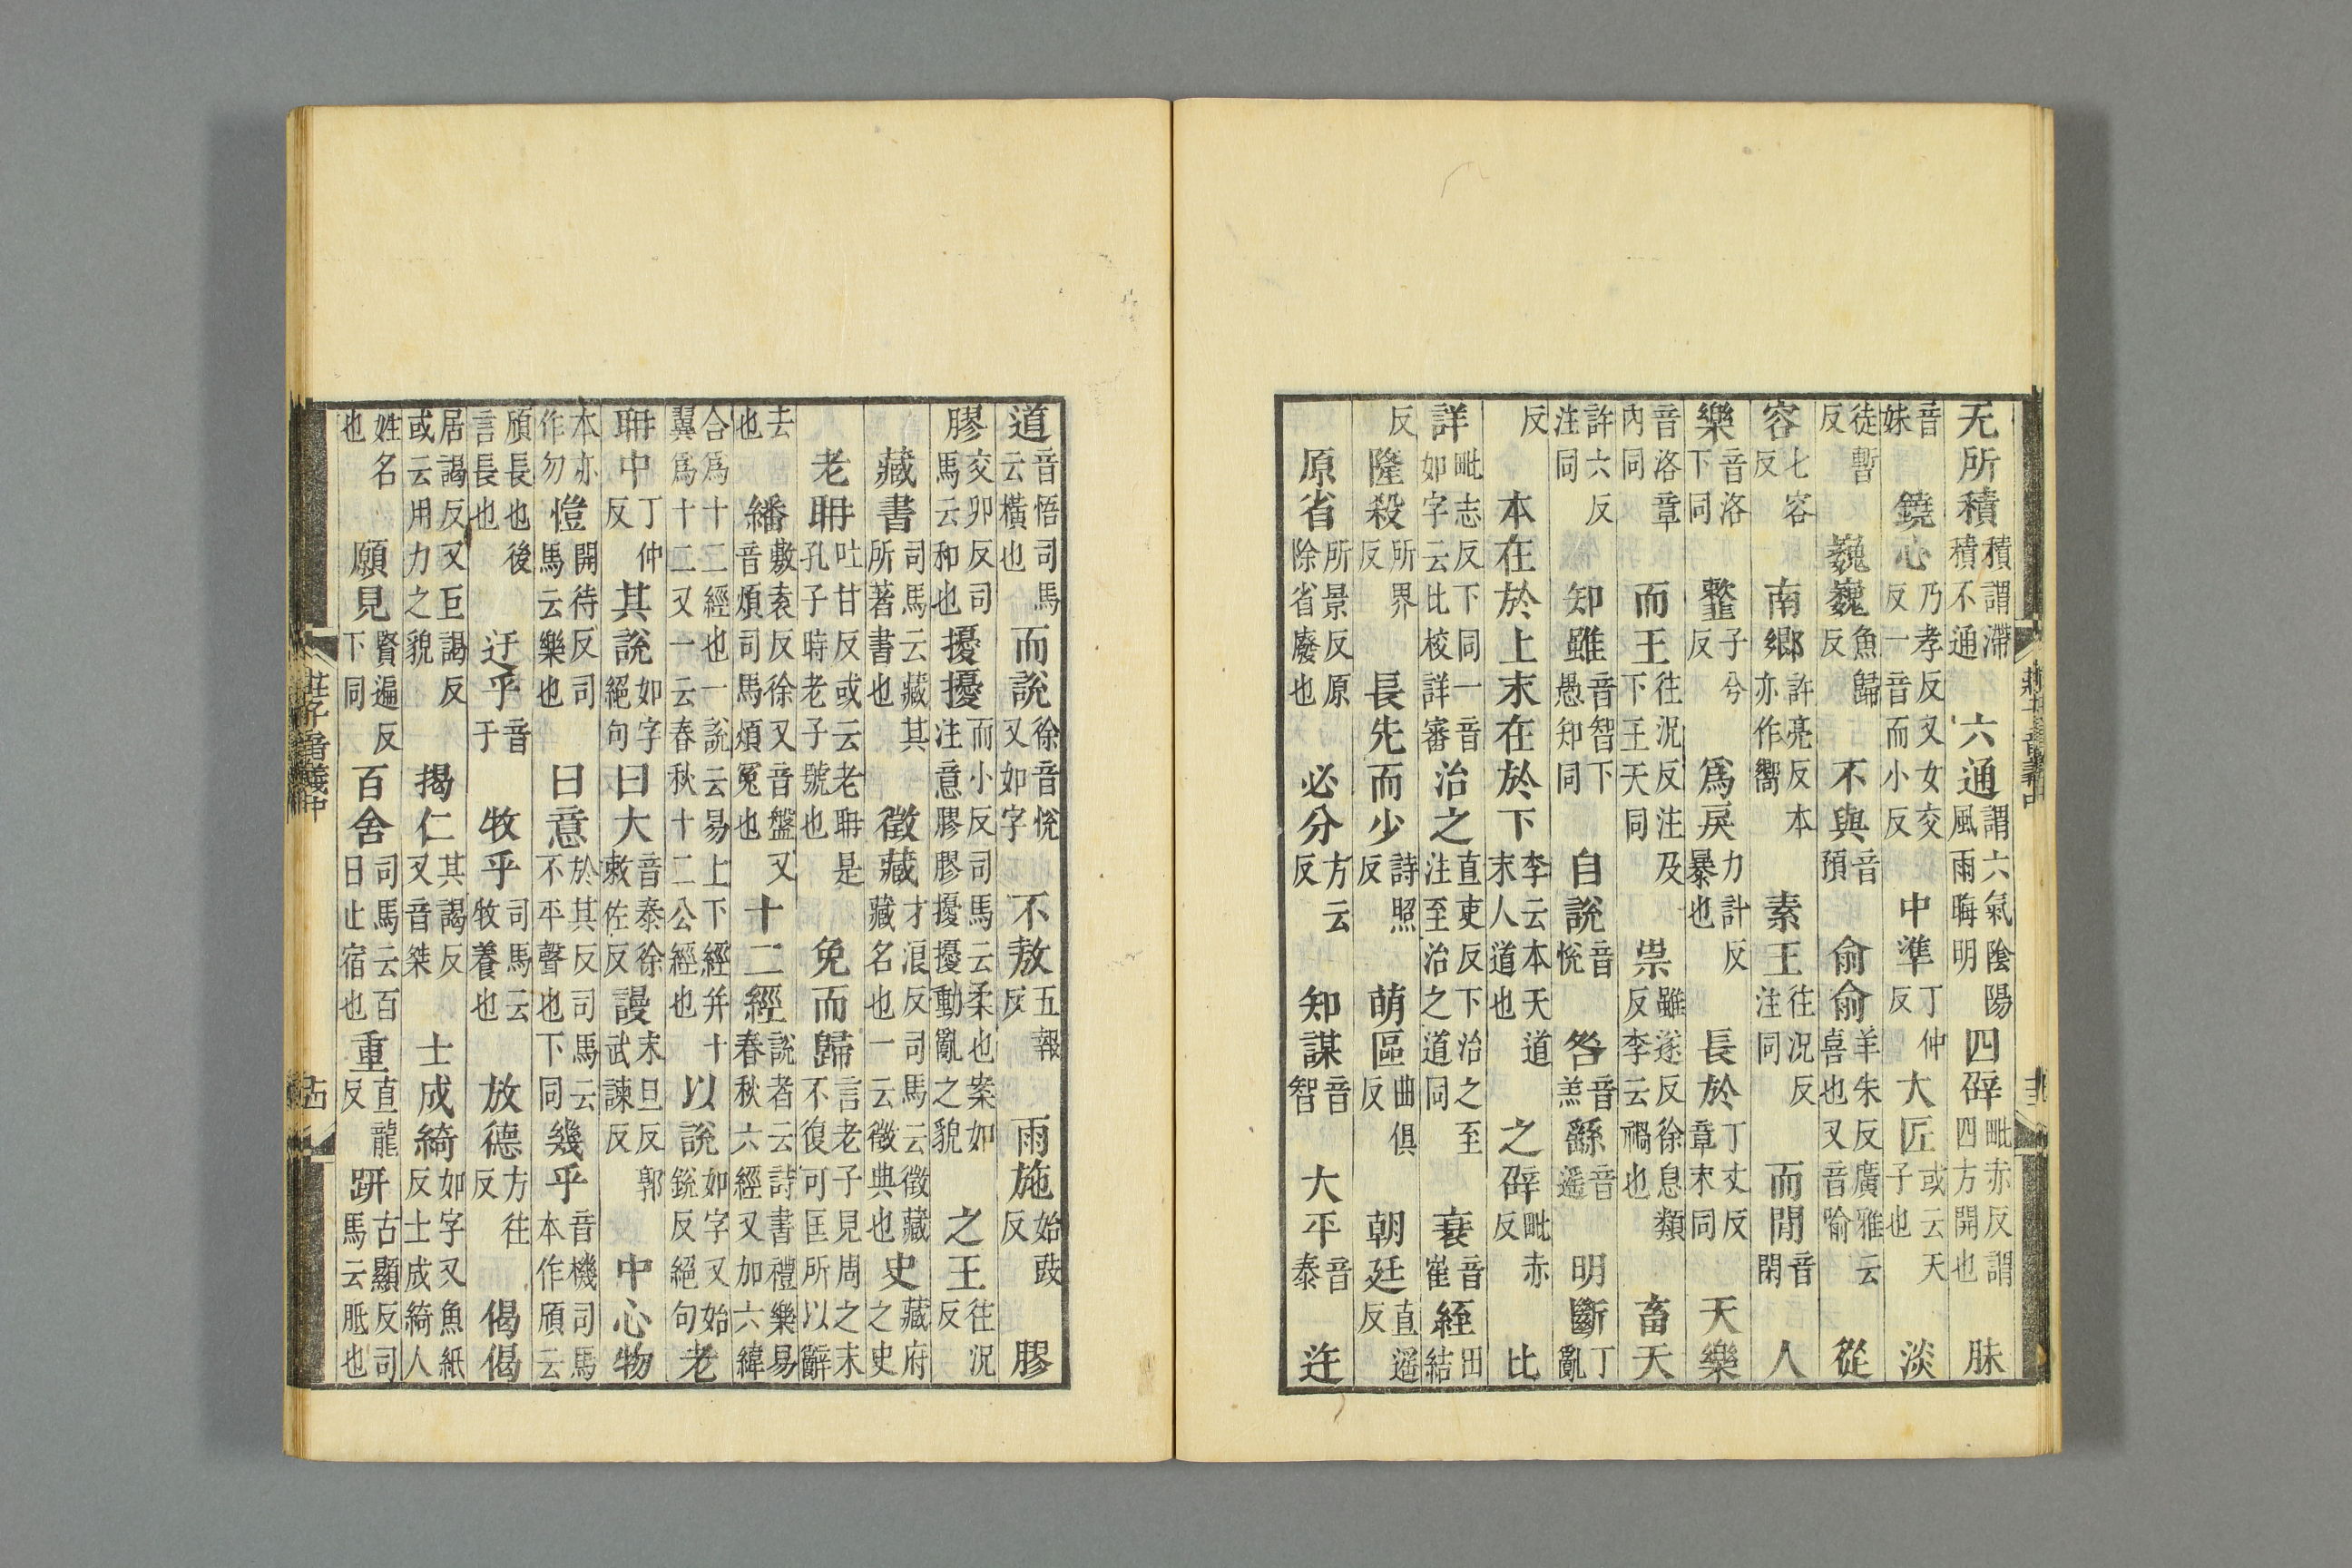 无所積積謂滯積不通六通謂六氣陰陽風雨晦明四辟毗赤反謂四方開也脉
音妹鐃心乃孝反又女交反一音而小反中準丁仲反大匠或云天子也淡
徒暫反巍巍魚歸反不與音預俞俞羊朱反廣雅云喜也又音喻從
容七容反南鄉許亮反本亦作嚮素王往況反注同而閒音閑人
樂音洛下同𩐎子兮反爲戾力計反暴也長於丁丈反章末同天樂
音洛章內同而王往況反注及下王天同祟雖遂反徐息類反李云禍也畜天
許六反注同知雖音智下愚知同自說音悅咎音羔繇音遥明斷丁亂
反本在於上末在於下李云本天道末人道也之辟毗赤反比
詳毗志反下同一音如字云比校詳審治之直吏反下治之至注至治之道同衰音崔絰田結
反隆殺所界反長先而少詩照反萌區曲俱反朝廷直遥反
原省所景反原除省廢也必分方云反知謀音智大平音泰迕
莊子音義中
道音悟司馬云橫也而說徐音悅又如字不敖五報反雨施始豉反膠
膠交卯反司馬云和也擾擾而小反司馬云柔也案如注意膠膠擾擾動亂之貌之王往況反
藏書司馬云藏其所著書也徵藏才浪反司馬云徵藏藏名也一云徵典也史藏府之史
老聃吐甘反或云老聃是孔子時老子號也免而歸言老子見周之末不復可匡所以辭
去也繙敷袁反徐又音盤又音煩司馬煩冤也十二經說者云詩書禮樂易春秋六經又加六緯
合爲十二經也一說云易上下經并十翼爲十二又一云春秋十二公經也以說如字又始銳反絕句老
聃中丁仲反其說如字絕句曰大音泰徐敕佐反謾末旦反郭武諫反中心物
本亦作勿愷開待反司馬云樂也曰意於其反司馬云不平聲也下同幾乎音機司馬本作頎云
頎長也後言長也迂乎音于牧乎司馬云牧養也放德方往反偈偈
居謁反又巨謁反或云用力之貌揭仁其謁反又音桀士成綺如字又魚紙反士成綺人
姓名也願見賢遍反下同百舍司馬云百日止宿也重直龍反趼古顯反司馬云胝也
莊子音義中